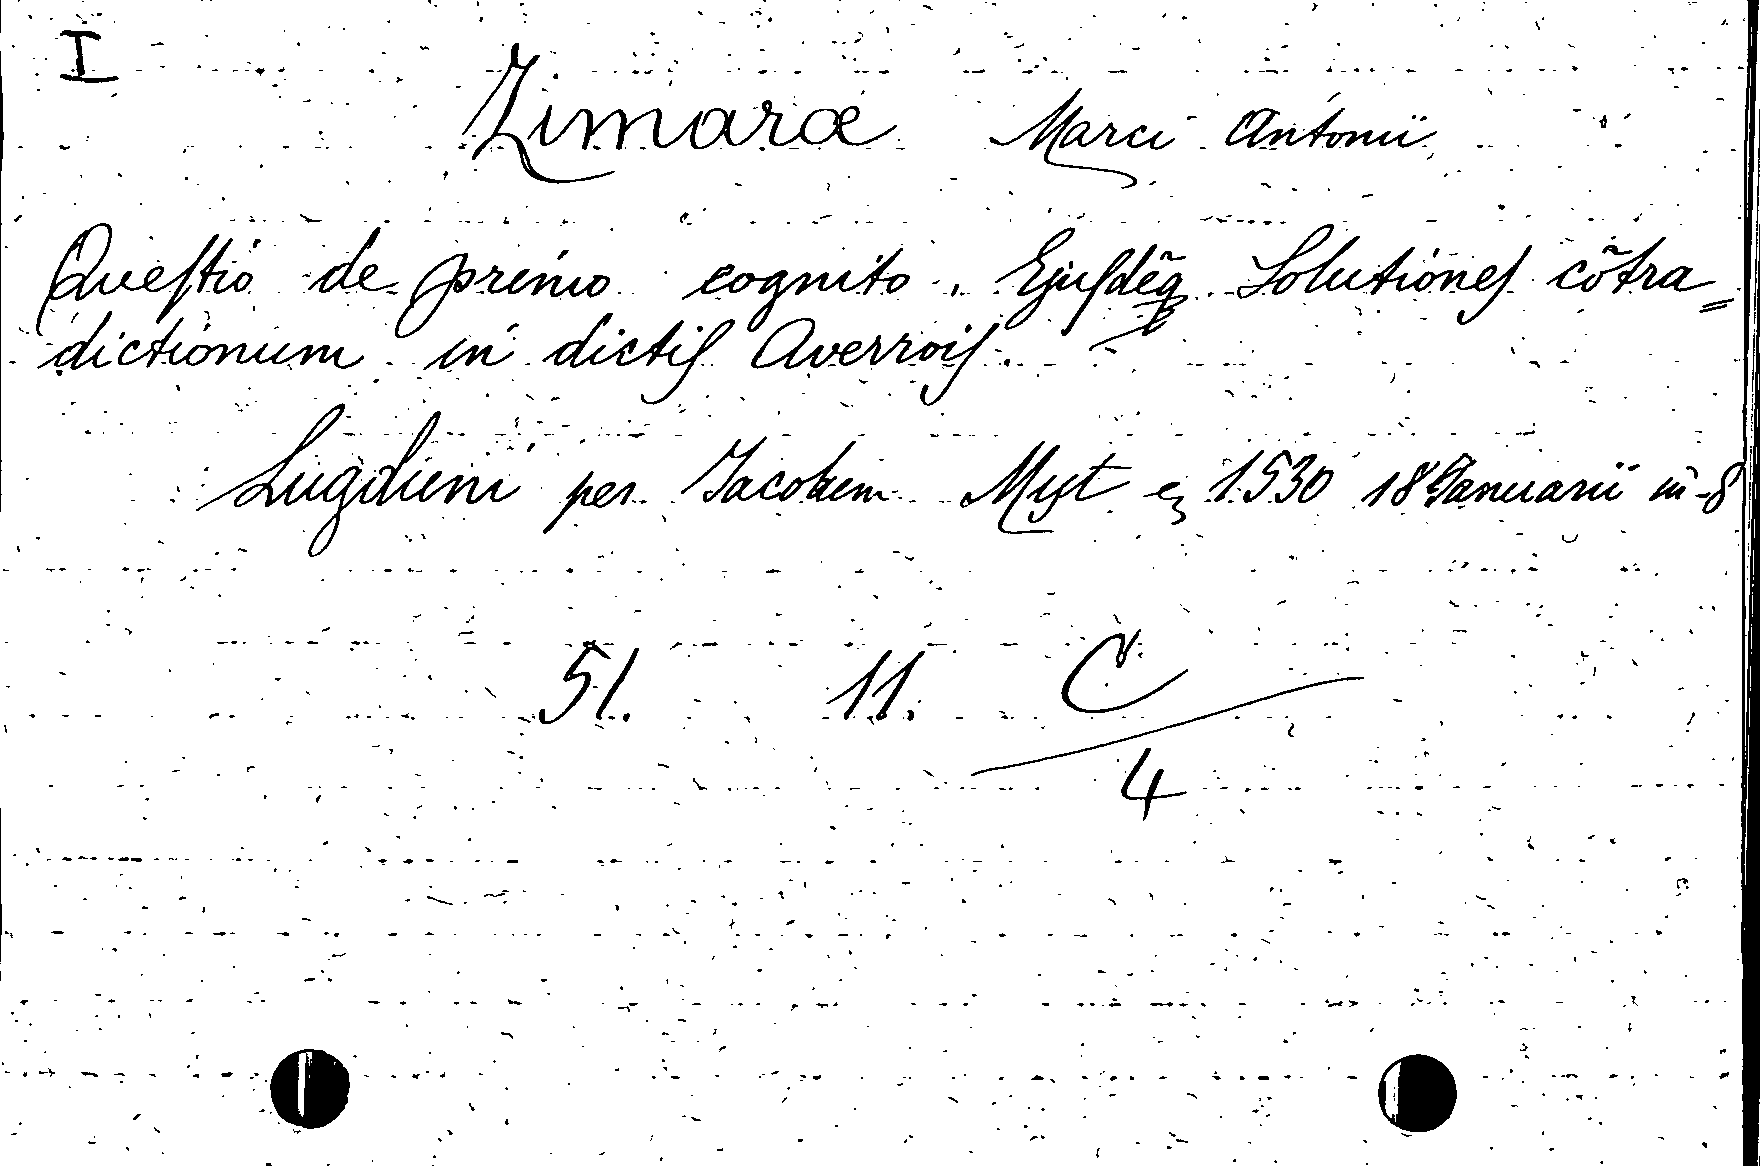 I
Zimaræ Marci Antonii
Queſtio de primo cognito. Ejuſdēq Solutioneſ cōtra=
dictionum in dictiſ Averroiſ.
Lugduni per Jacobum Myt 1530 18 Januarii in-8
51. 11. C
4